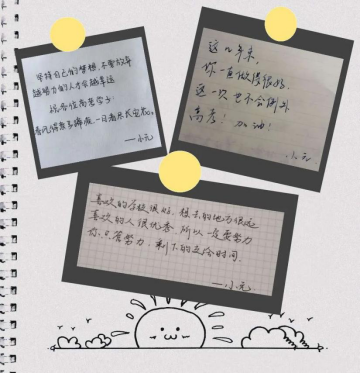 坚持自己的梦想,不要放弃
越努力的人才会越幸运
祝每位高考学子:
春风得意马蹄疾,一日看尽长安花。
——小元
这几年来,
你一直做得很好,
这一次也不会例外
高考!加油!
小元
喜欢的学校很好,想去的地方很远
喜欢的人很优秀,所以一定要努力
你只管努力,剩下的交给时间.
——小元